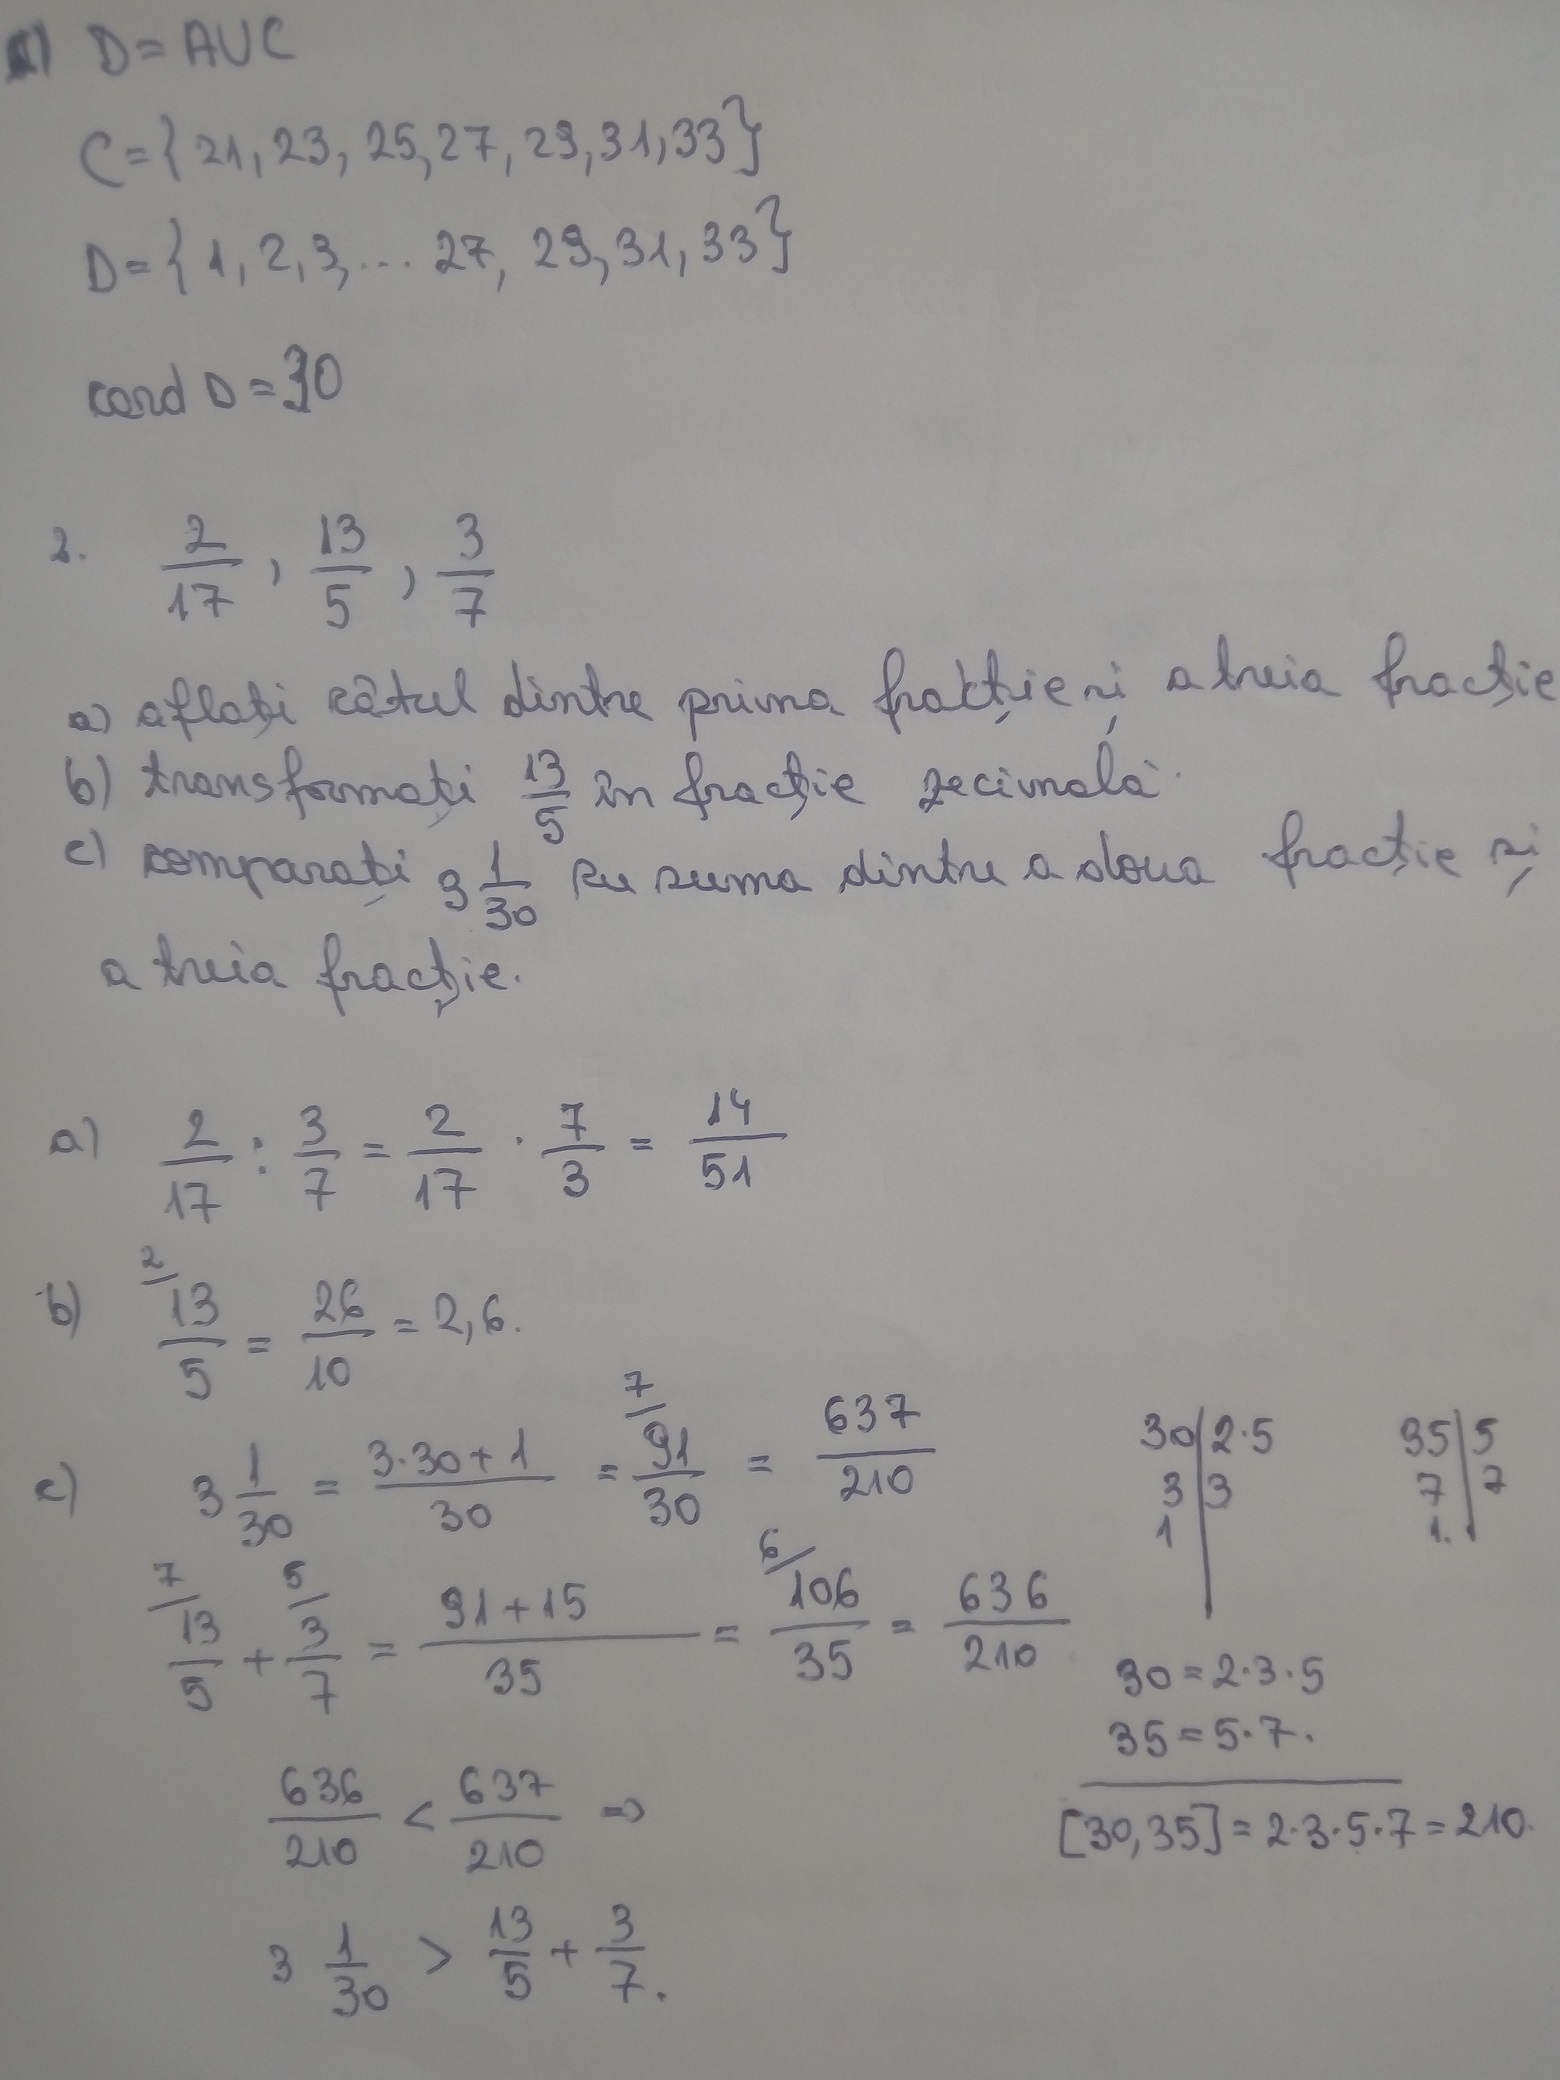 c) D = A∪C
C = {21, 23, 25, 27, 29, 31, 33}
D = {1, 2, 3, ... 27, 29, 31, 33}
card D = 30
2. 2/17, 13/5, 3/7
a) aflați câtul dintre prima fracție și a treia fracție
b) transformați 13/5 în fracție zecimală.
c) comparați 3 1/30 cu suma dintre a doua fracție și
a treia fracție.
a) 2/17 : 3/7 = 2/17 · 7/3 = 14/51
b) ²⁾13/5 = 26/10 = 2,6.
c) 3 1/30 = (3·30+1)/30 = ⁷⁾91/30 = 637/210
30 | 2·5
3 | 3
1 |
35 | 5
7 | 7
1. |
⁷⁾13/5 + ⁵⁾3/7 = (91+15)/35 = ⁶⁾106/35 = 636/210
30 = 2·3·5
35 = 5·7.
[30,35] = 2·3·5·7 = 210.
636/210 < 637/210 =>
3 1/30 > 13/5 + 3/7.